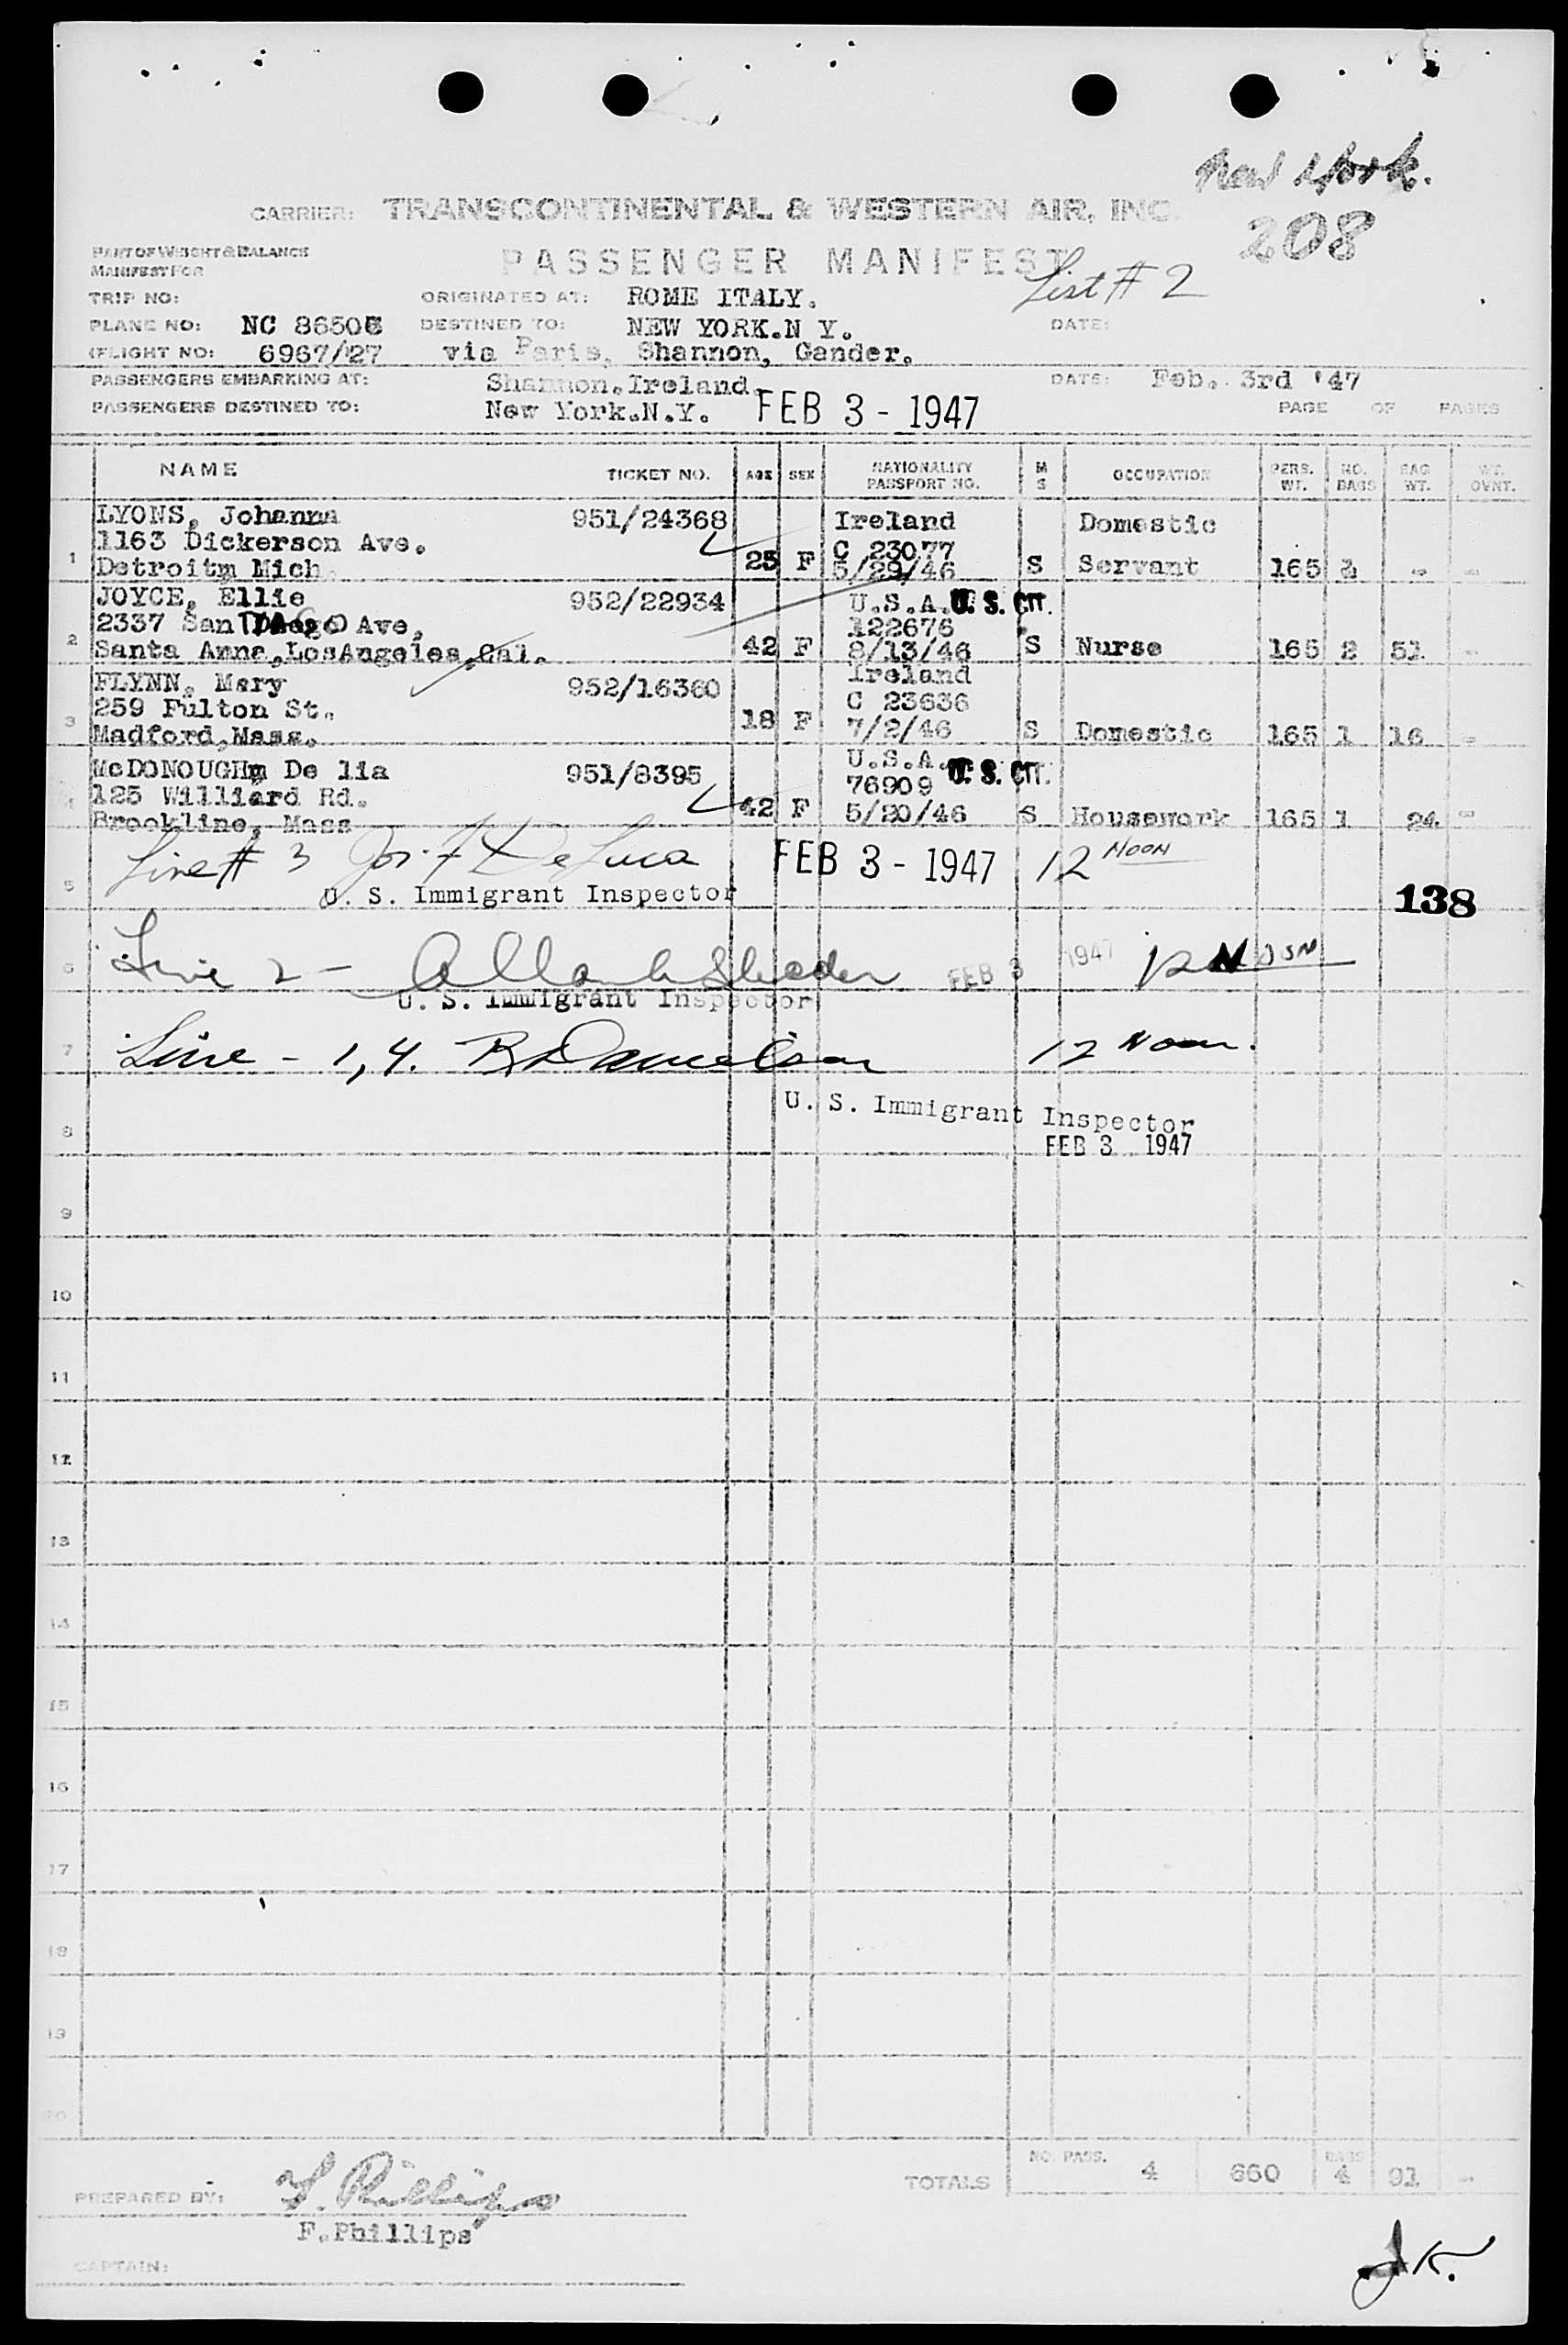 New York.
CARRIER: TRANSCONTINENTAL & WESTERN AIR, INC.
208
PART OF WEIGHT & BALANCE
MANIFEST FOR
PASSENGER MANIFEST
List # 2
TRIP NO:
ORIGINATED AT: ROME ITALY.
PLANE NO: NC 8650 DESTINED TO: NEW YORK.N Y. DATE:
(FLIGHT NO: 6967/27 via Paris, Shannon, Gander.
PASSENGERS EMBARKING AT: Shannon.Ireland. DATE: Feb. 3rd '47
PASSENGERS DESTINED TO: New York.N.Y. FEB 3 - 1947 PAGE OF PAGES
NAME TICKET NO. AGE SEX NATIONALITY PASSPORT NO. M S OCCUPATION PERS. WT. NO. BAGS BAG WT. WT. OVNT.
LYONS, Johanna 951/24368 Ireland Domestic
1163 Dickerson Ave. C 23077
1 Detroitm Mich. 25 F 5/29/46 S Servant 165 - -
JOYCE, Ellie 952/22934 U.S.A. U. S. CIT.
2337 San Ave, 122676
2 Santa Anna,LosAngeles,Cal. 42 F 8/13/46 S Nurse 165 2 51 -
FLYNN, Mary 952/16360 Ireland
259 Fulton St. C 23636
3 Madford,Mass. 18 F 7/2/46 S Domestic 165 1 16 -
McDONOUGHm De lia 951/8395 U.S.A. U. S. CIT.
4 125 Williard Rd. 76909
Brookline, Mass 42 F 5/20/46 S Housework 165 1 24 -
Line # 3 Jos. F DeLuca FEB 3 - 1947 12 NOON
5 U. S. Immigrant Inspector 138
6 Line 2 - FEB 3 1947 12 NOON
U. S. Immigrant Inspector
7 Line - 1, 4. R Danielson 12 Noon.
U. S. Immigrant Inspector
8 FEB 3 1947
9
10
11
12
13
14
15
16
17
18
19
20
TOTALS NO. PASS. 4 660 BAGS 4 91 -
PREPARED BY: F. Phillips
F.Phillips
J.K.
CAPTAIN: